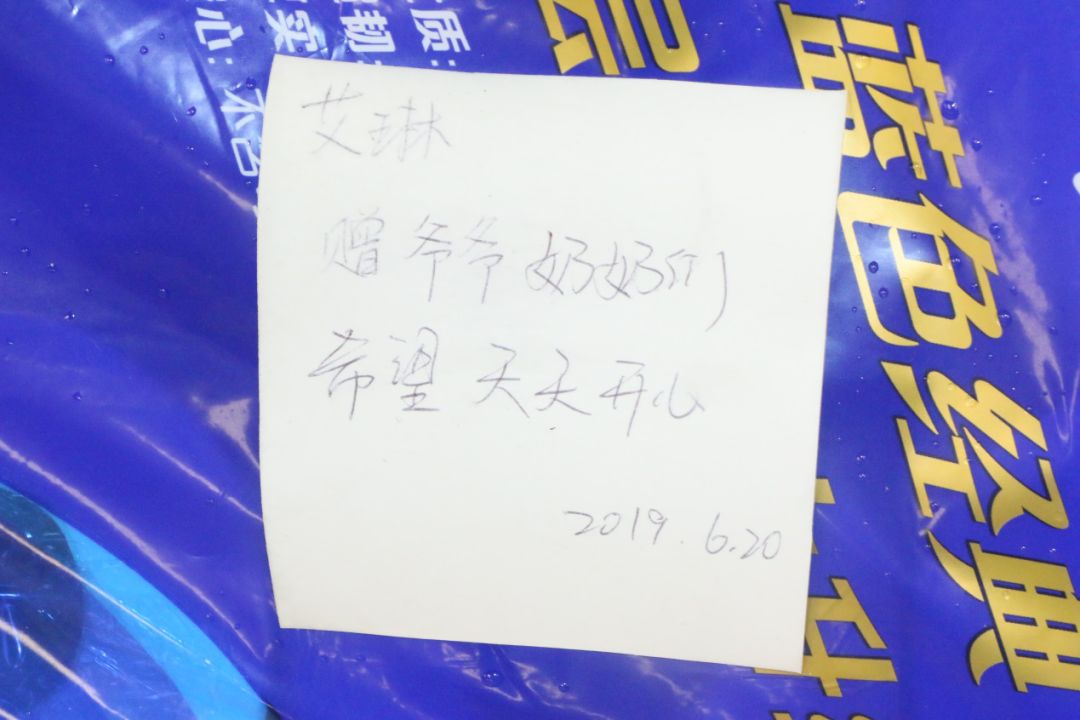 艾琳
赠爷爷奶奶们
希望天天开心
2019.6.20
蓝色经典
质:
韧
实
心:不含